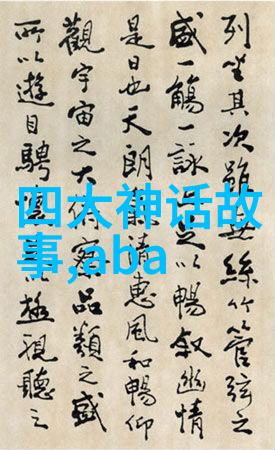 列坐其次雖無絲竹管弦之
盛一觴一詠足以暢敘幽情
是日也天朗清惠風和暢仰
觀宇宙之大俯察品類之盛
所以遊目騁懷以極視聽之
四大神话故
事,aba